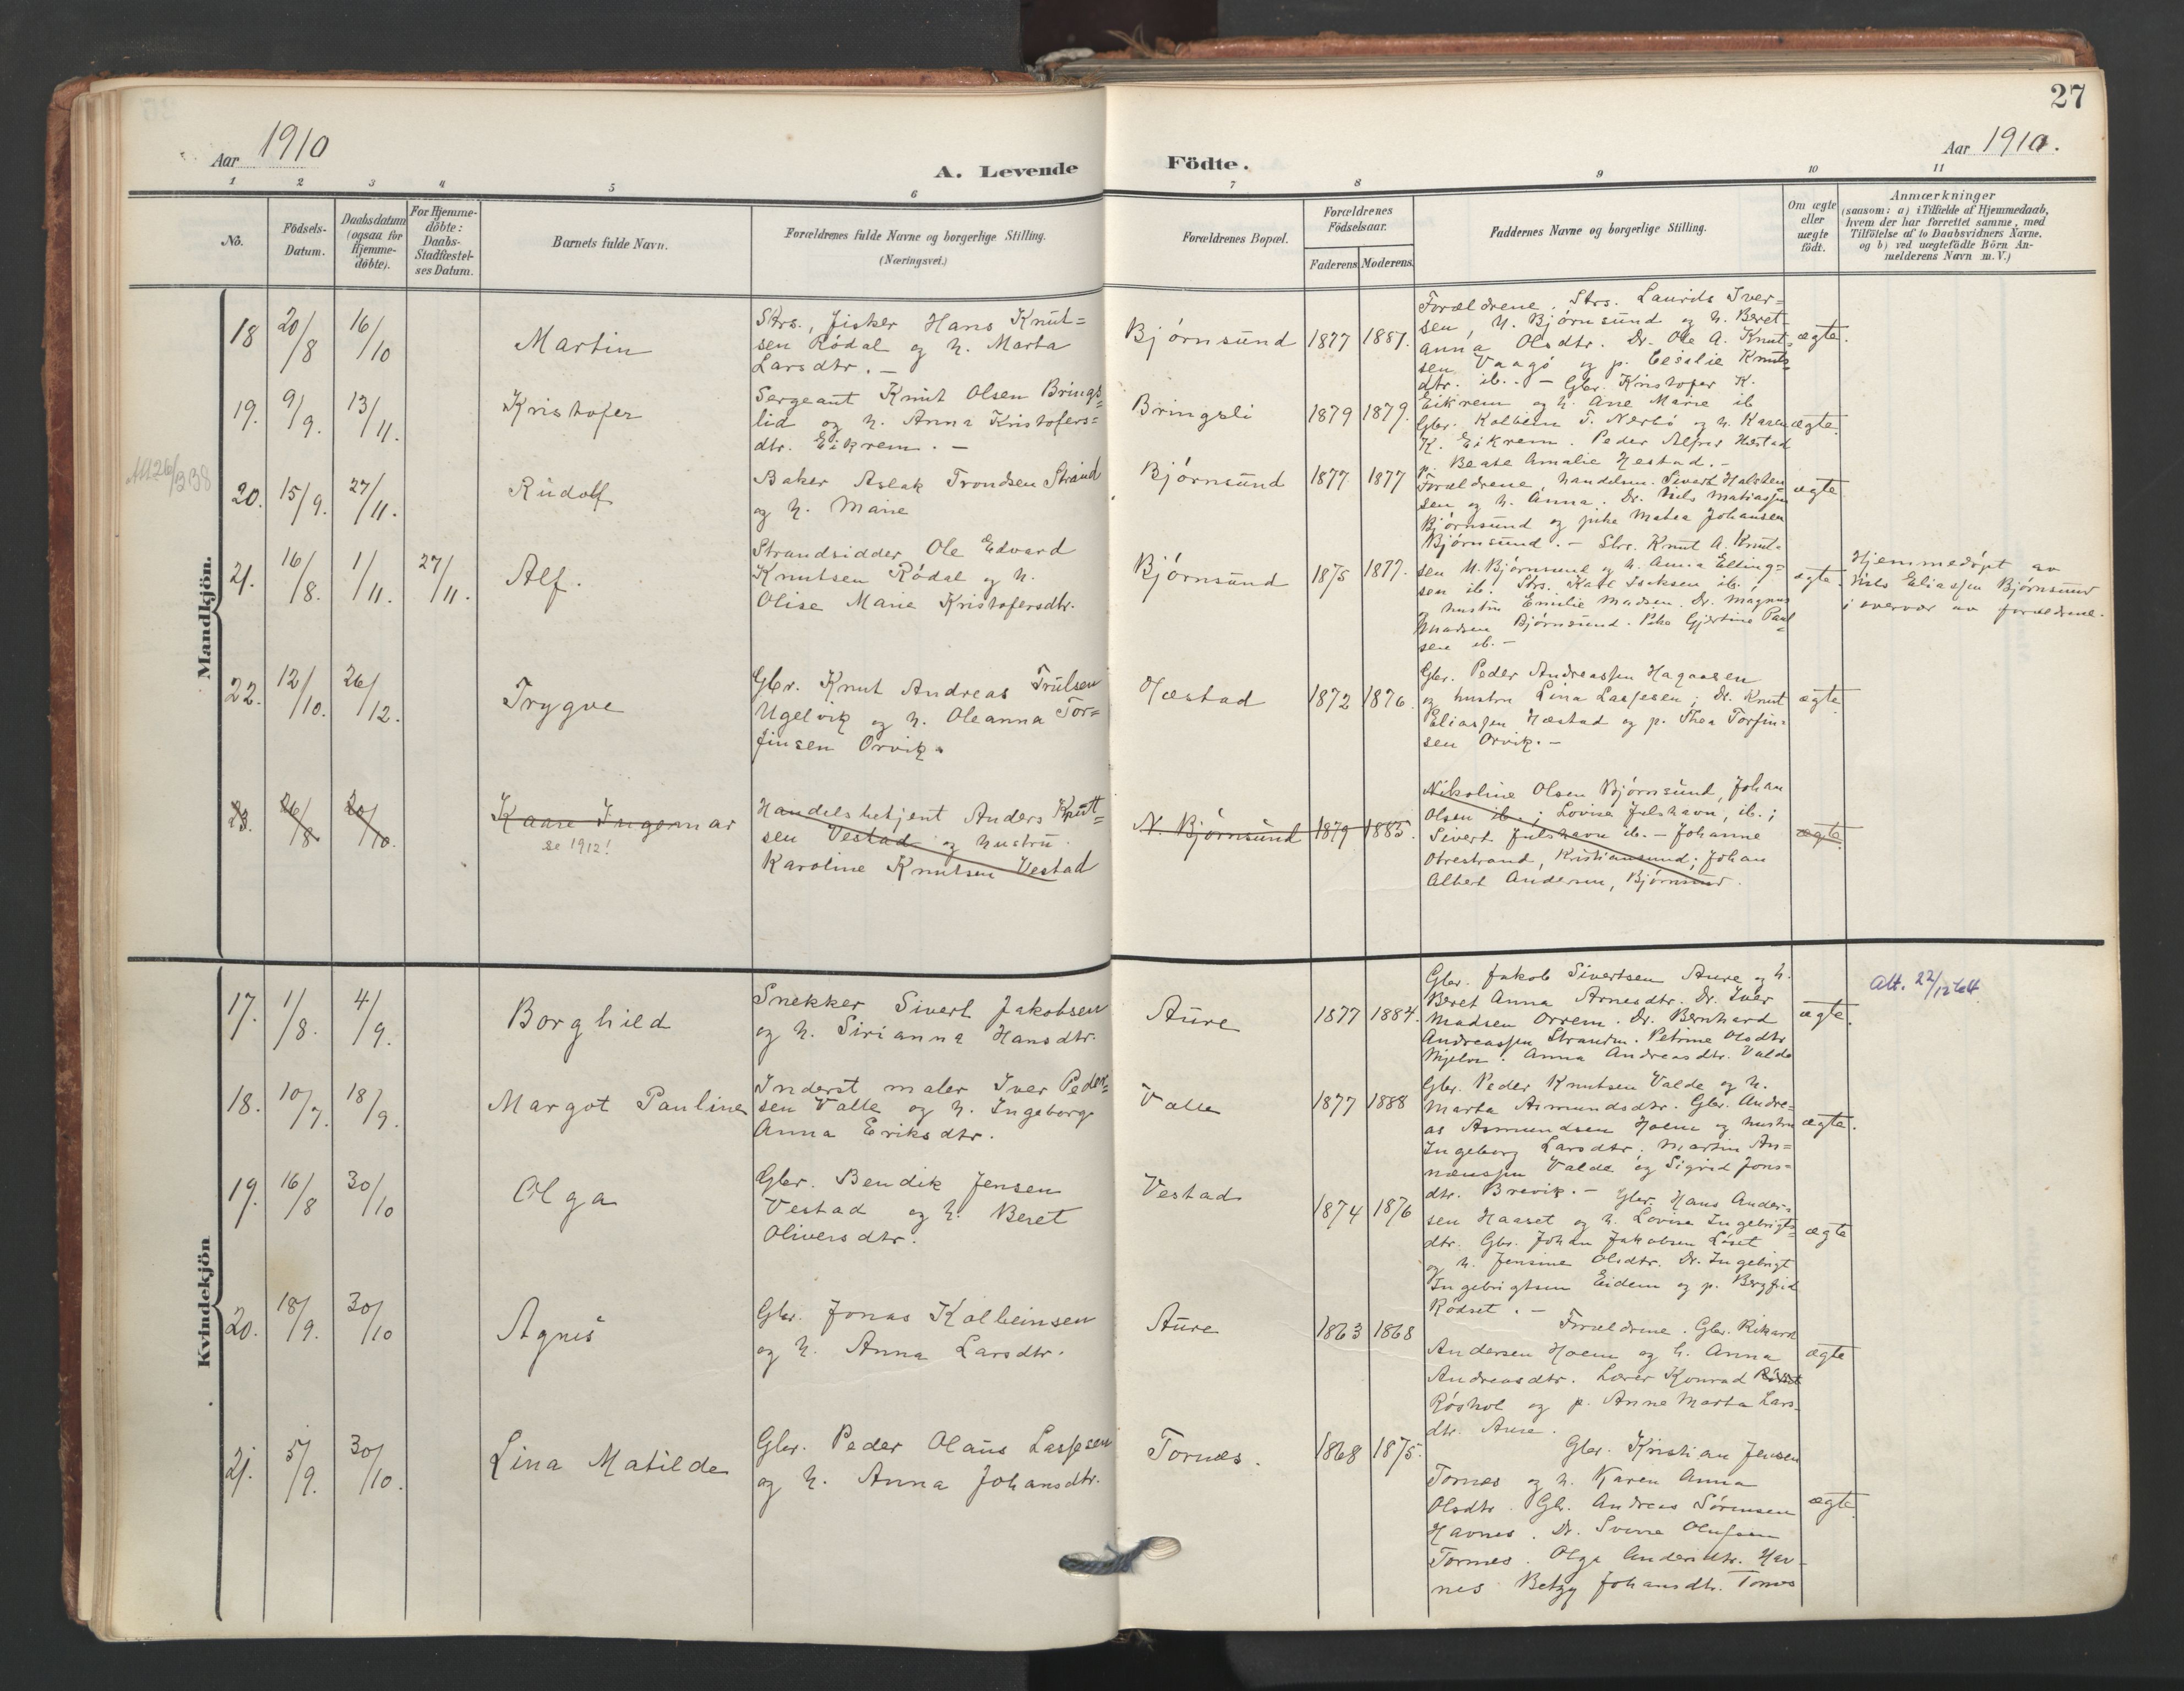 27
Aar 1910
Aar 1910.
A. Levende Fødte.
1 2 3 4 5 6 7 8 9 10 11
No.
Födsels-
Datum.
Daabsdatum
(ogsaa for
Hjemme-
döbte).
For Hjemme-
döbte:
Daabs-
Stadfæstel-
ses Datum.
Barnets fulde Navn.
Forældrenes fulde Navne og borgerlige Stilling.
(Næringsvei.)
Forældrenes Bopæl.
Forældrenes
Födselsaar.
Faderens Moderens
Faddernes Navne og borgerlige Stilling.
Om ægte
eller
uægte
födt.
Anmærkninger
(saasom: a) i Tilfælde af Hjemmedaab,
hvem der har forrettet samme, med
Tilföielse af to Daabsvidners Navne.
og b) ved uægtefödte Börn An-
melderens Navn m.V.)
Mandkjön.
18 20/8 16/10
Martin
Strs., fisker Hans Knut=
sen Ródal og h. Marta
Larsdtr. —
Bjórnsund 1877 1881.
Forældrene. Strs. Laurits Iver=
sen, N. Bjórnsund og h. Beret
anna Olsdtr. Dr. Ole A. Knut=
sen Vaagó og p. Cecilie Knuts
dtr. ib. — Gbr. Kristofer K.
ægte.
19. 9/9. 13/11.
Kristofer
Sergeant Knut Olsen Brings=
lid og h. Anna Kristofers=
dtr. Eikrem. —
Bringsli 1879 1879.
Eikrem og h. Ane Marie ib
Gbr. Kolbein T. Nerbó og h. Karen
K. Eikrem. Peder Alfred Hestad
p. Beate Amalie Hestad. —
ægte.
20. 15/9. 27/11.
Rudolf
Baker Aslak Trondsen Strand
og h. Marie
Bjórnsund 1877 1877
Forældrene, handelsm. Sivert Halsten
sen og h. Anna. Dr. Nils Matiassen
Bjórnsund og pike Matea Johansen
Bjórnsund. — Strs. Knut A. Knut-
ægte
21. 16/8. 1/11. 27/11.
Alf.
Strandsidder Ole Edvard
Knutsen Ródal og h.
Olise Marie Kristofersdtr.
Bjórnsund 1875 1877.
sen N. Bjórnsund og h. Anna Elling=
sen ib. Strs. Karl Isaksen ib.
og hustru Emilie Madsen. Dr. Magnus
Madsen Bjórnsund. Pike Gjertine Paul
sen ib. —
ægte.
Hjemmedópt av
Nils Eliassen Bjórnsund
i overvær av forældrene.
22. 12/10. 26/12.
Trygve
Gbr. Knut Andreas Trulsen
Ugelvik og h. Oleanna Tor=
finsen Orvik.
Hestad 1872 1876.
Gbr. Peder Andreassen Hagaasen
og hustru Lina Lassesen; Dr. Knut
Eliassen Hestad og p. Thea Torfin=
sen Orvik. —
ægte
23. 26/8 20/10.
Kaare Ingemar
se 1912!
Handelsbetjent Anders Knut=
sen Vestad og hustru
Karoline Knutsen Vestad
N. Bjórnsund 1879 1885.
Nikoline Olsen Bjórnsund, Johan
Olsen ib.; Lovise Julshavn, ib.;
Sivert Julshavn ib. — Johanne
Otrestrand, Kristiansund; Johan
Albert Andersen, Bjórnsund.
ægte.
Kvindekjön
17. 1/8. 4/9.
Borghild
Snekker Sivert Jakobsen
og h. Sirianna Hansdtr.
Aure 1877 1884.
Gbr. Jakob Sivertsen Aure og h.
Beret Anna Arnesdtr. Dr. Iver
Madsen Orrem. Dr. Bernhard
Andreassen Strand. Petrine Olsdtr
Mjelve. Anna Andreasdtr. Valde
ægte.
Att. 22/12
18. 10/7. 18/9.
Margot Pauline
Inderst maler Iver Peder=
sen Valle og h. Ingeborg
Anna Eriksdtr.
Valle 1877 1888
Gbr. Peder Knutsen Valde og h.
Marta Asmundsdtr. Gbr. Andre=
as Asmundsen Hoem og hustru
Ingeborg Larsdtr. Martin An=
Valde og Sigrid Jons=
dtr. Brevik. — Gbr. Hans Ander=
ægte.
19. 16/8 30/10
Olga
Gbr. Bendik Jensen
Vestad og h. Beret
Oliversdtr.
Vestad 1874 1876
sen Haaset og h. Lovise Ingebrigts=
dtr. Gbr. Johan Jakobsen Lóset
og h. Jensine Olsdtr. Dr. Ingebrigt
Ingebrigtsen Eidem og p. Bergfrid
Ródset. — Forældrene. Gbr. Rikard
ægte
20. 18/9. 30/10
Agnes
Gbr. Jonas Kolbeinsen
og h. Anna Larsdtr.
Aure 1863 1868
Andersen Hoem og h. Anna
Andreasdtr. Lærer Konrad
Róshol og p. Anne Marta Lars-
dtr. Aure.
ægte
21. 5/9. 30/10.
Lina Matilde
Gbr. Peder Olaus Lassesen
og h. Anna Johansdtr.
Tornes. 1868 1875.
Gbr. Kristian Jensen
Tornes og h. Karen Anna
Olsdtr. Gbr. Andreas Sórensen
Havnes. Dr. Sverre Olufsen
Tornes. Olga Andersdtr. Hav-
nes Betzy Johansdtr. Tornes
ægte.